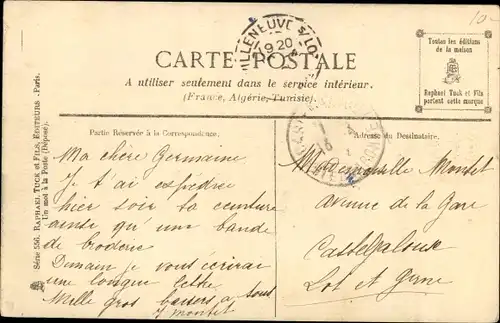 VILLENEUVE S/LOT
9 20
CARTE POSTALE
A utiliser seulement dans le service intérieur.
(France, Algérie, Tunisie).
Toutes les éditions
de la maison
Raphael Tuck et Fils
portent cette marque
10
Partie Réservée à la Correspondance.
Adresse du Destinataire.
Série 556. RAPHAEL TUCK et FILS, EDITEURS - Paris.
Un mot à la Poste (Déposé).
Ma chère Germaine
Je t'ai expédiée
hier soir ta ceinture
ainsi qu'une bande
de broderie
Demain je vous écrirai
une longue lettre
Mille gros baisers à tous
Y Montet
Mademoiselle Montet
avenue de la Gare
Casteljaloux
Lot et Garonne